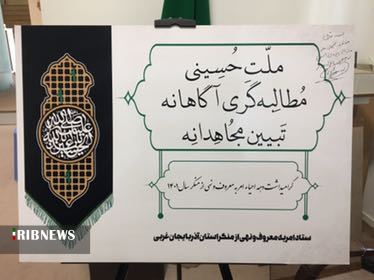 ملّت حُسینی
مُطالبه‌گری آگاهانه
تَبیین مجاهدانه
گرامیداشت دهه احیاء امر به معروف و نهی از منکر سال ۱۴۰۱
ستاد امر به معروف و نهی از منکر استان آذربایجان غربی
IRIBNEWS